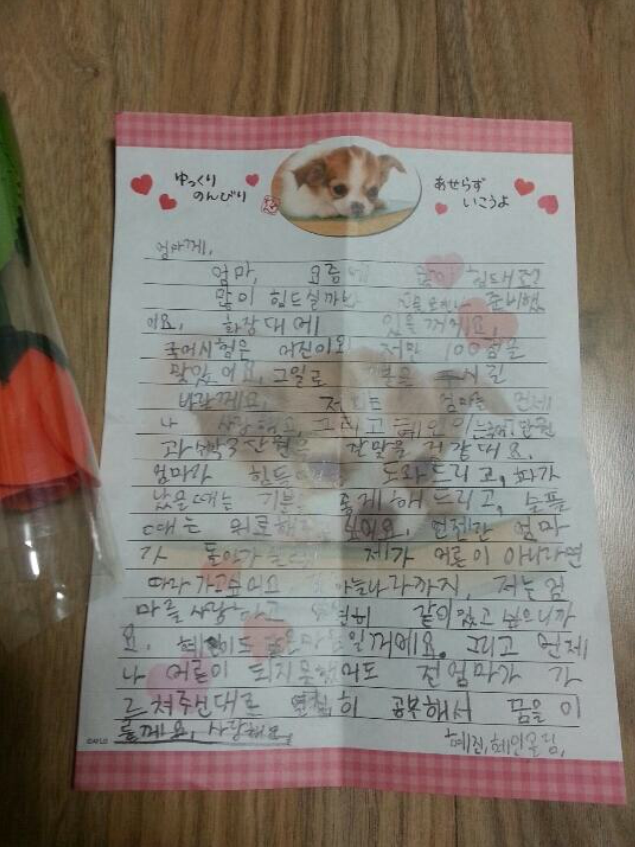 ゆっくり
のんびり
あせらず
いこうよ
엄마께,
엄마, 요즘에 힘드세요?
많이 힘드실까봐 준비했
어요. 화장대에 있을꺼에요,
국어시험은 어진이와 저만 100점을
맞았어요, 그일로 기분을 시길
바랄께요, 저희는 엄마를 언제
나 사랑해요, 그리고 혜
과 3단원은 잘맞을 것 같대요.
엄마가 힘드 도와드리고, 화가
났을때는 기분 좋게해드리고, 슬플
때는 위로해 싶어요. 언젠간 엄마
가 돌아가 제가 어른이 아니라면
따라가고싶어요 하늘나라까지, 저는 엄
마를 사랑하고 같이있고 싶으니까
요. 혜인이도 같은마음일꺼에요. 그리고 언제
나 어른이 되지못했어도 전 엄마가 가
르쳐주신대로 열심히 공부해서 꿈을 이
룰께요, 사랑해요,
혜진, 혜인올림,